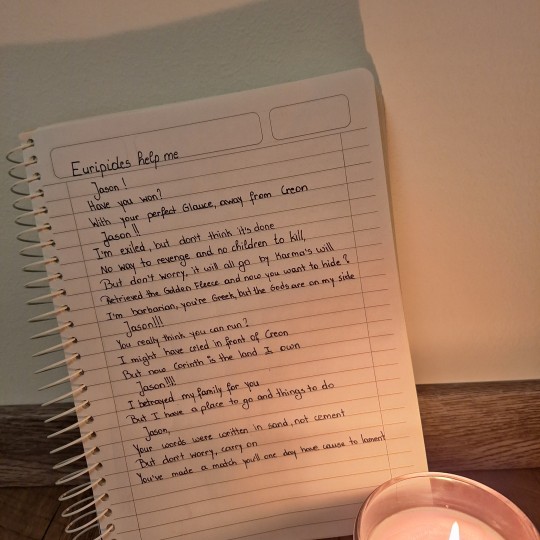 Euripides help me
Jason!
Have you won?
With your perfect Glauce, away from Creon
Jason!!
I'm exiled, but don't think it's done
No way to revenge and no children to kill,
But don't worry, it will all go by Karma's will
Retrieved the Golden Fleece and now you want to hide?
I'm barbarian, you're Greek, but the Gods are on my side
Jason!!!
You really think you can run?
I might have cried in front of Creon
But now Corinth is the land I own
Jason!!!!
I betrayed my family for you
But I have a place to go and things to do
Jason,
Your words were written in sand, not cement
But don't worry, carry on
You've made a match you'll one day have cause to lament